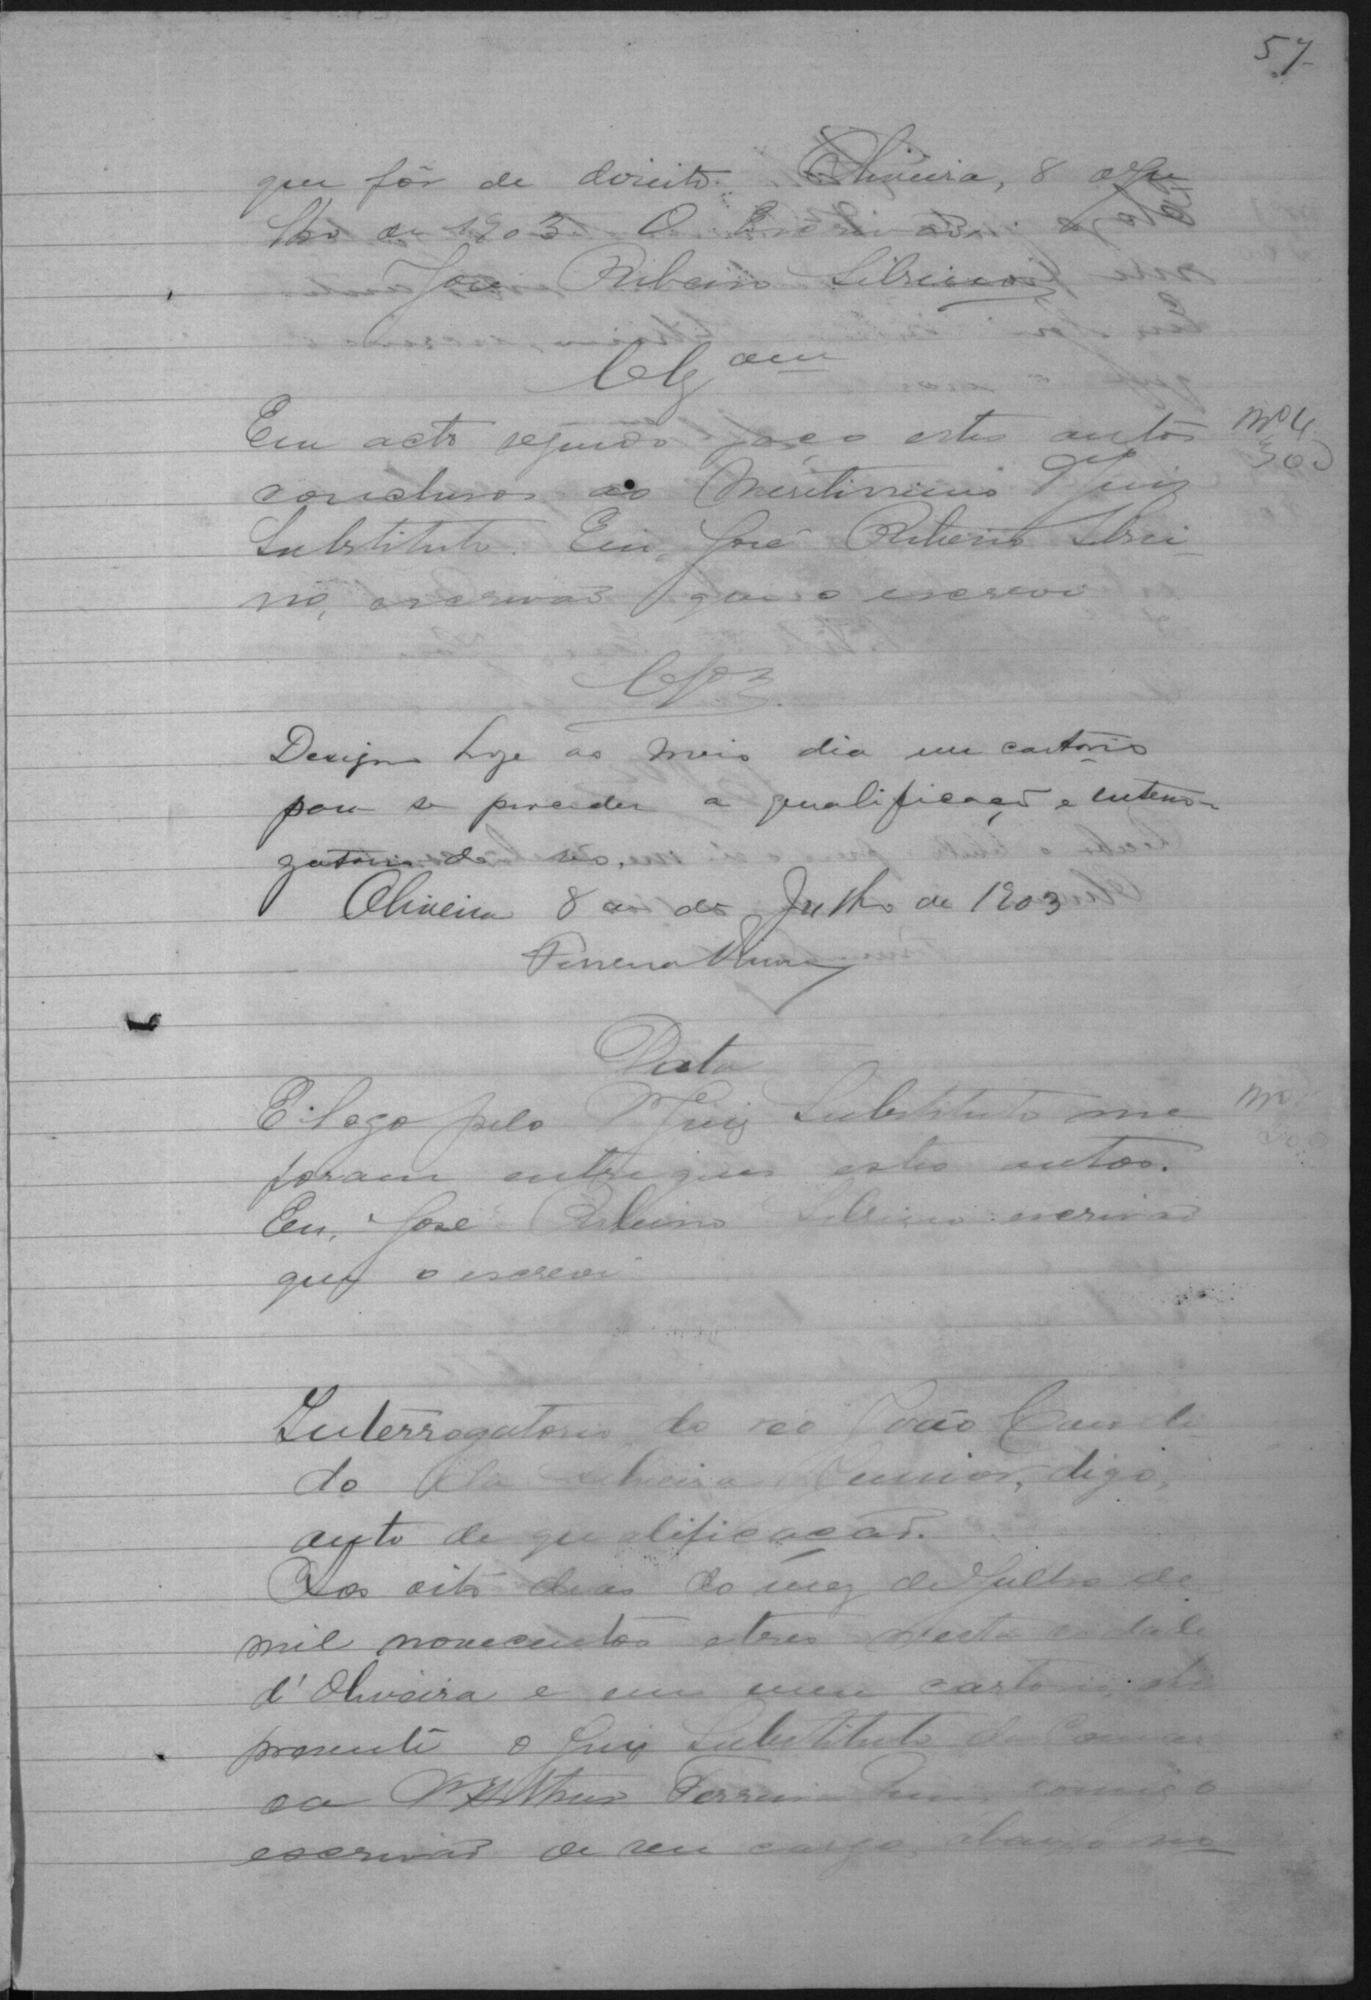 57
que fôr de direito. Oliveira, 8 de Ju
lho de 1903. O Escrivão
José Ribeiro Silvino
Clzam
Em acto seguido faço estes autos
conclusos ao Meritissimo Juiz
Substituto. Eu, José Ribeiro Silvi-
no, escrivão que o escrevi
Clzos
Designo hoje ao meio dia em cartorio
para se proceder a qualificação e interro-
gatorio do reo.
Oliveira 8 de Julho de 1903
Ferreira
Data
E logo pelo M. Juiz Substituto me
foram entregues estes autos.
Eu, José Ribeiro Silvino escrivão
que o escrevi
Interrogatorio do reo João Candi-
do da Silveira Junior, digo,
auto de qualificação.
Aos oito dias do mez de Julho de
mil novecentos e tres nesta cidade
d'Oliveira e em meu cartorio, ahi
presente o Juiz Substituto da Comar
ca Arthur Ferreira comigo
escrivão de seu cargo abaixo no